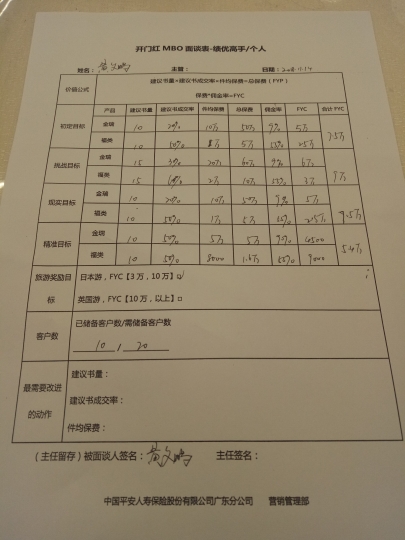 开门红 MBO 面谈表-绩优高手/个人
姓名: 主管: 日期:
价值公式 建议书量×建议书成交率×件均保费=总保费（FYP）
保费*佣金率=FYC
产品 建议书量 建议书成交率 件均保费 总保费 佣金率 FYC 合计 FYC
初定目标 金瑞 10 20% 10万 50万 5万 7.5万
福类 10 50% 1万 5万 2.5万
挑战目标 金瑞 15 20万 60万 6万 9万
福类 15 2万 10万 3万
现实目标 金瑞 10 20% 10万 50万 5万
福类 10 50% 1万 5万 2.5万
精准目标 金瑞 10 50% 5万 5万 4500 5.4万
福类 10 50% 8000 1.6万 9000
旅游奖励目标 日本游，FYC【3 万，10 万】☑
英国游，FYC【10 万，以上】□
客户数 已储备客户数/需储备客户数
10 / 20
最需要改进的动作 建议书量：
建议书成交率：
件均保费：
（主任留存）被面谈人签名： 主任签名：
中国平安人寿保险股份有限公司广东分公司 营销管理部